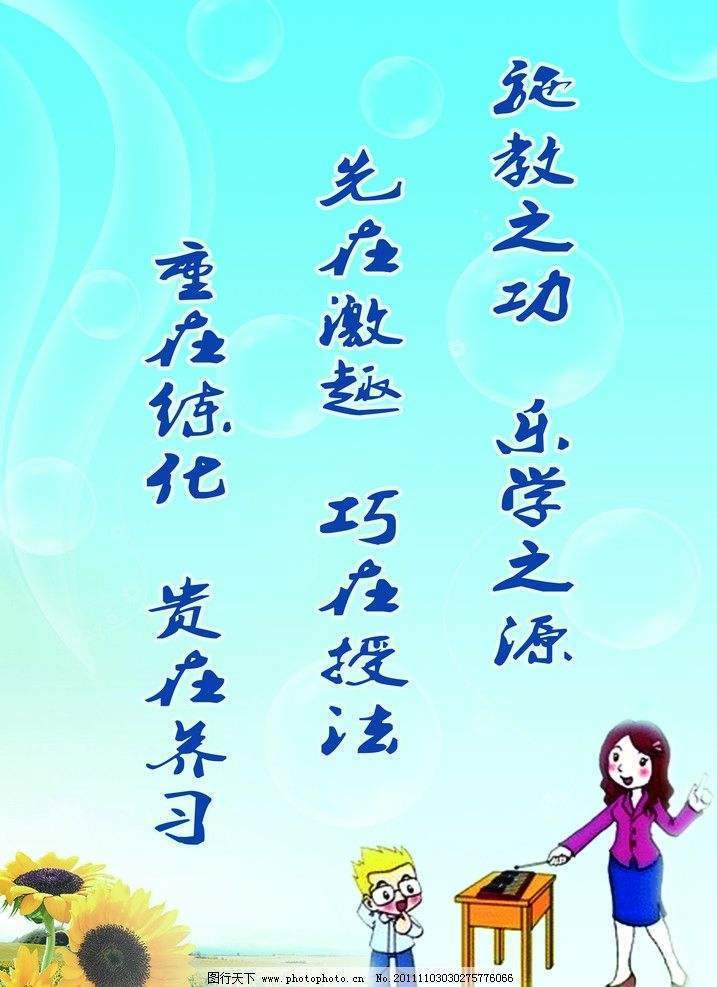 施教之功 乐学之源
先在激趣 巧在授法
重在练化 贵在养习
图行天下 www.photophoto.cn No.20111103030275776066